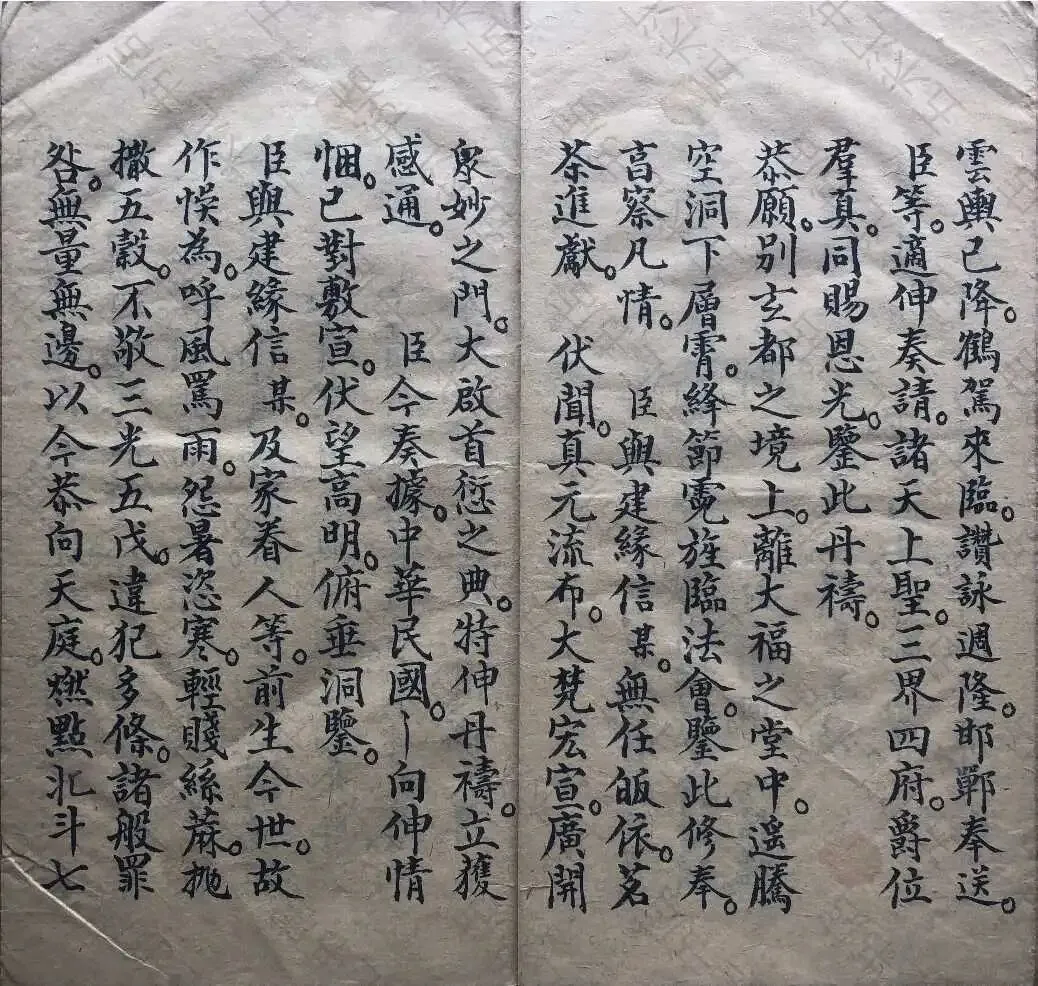 雲輿已降。鶴駕來臨。讚詠週隆。邯鄲奉送。
臣等。適伸奏請。諸天上聖。三界四府。爵位
羣真。同賜恩光。鑒此丹禱。
恭願。別玄都之境上。離大福之堂中。遥騰
空洞下層霄。絳節霓旌臨法會。鑒此修奉。
高察凡情。 臣與建緣信某。無任皈依。茗
茶進獻。 伏聞。真元流布。大梵宏宣。廣開
衆妙之門。大啟首愆之典。特伸丹禱。立獲
感通。 臣今奏據。中華民國。〡向伸情
悃。已對敷宣。伏望高明。俯垂洞鑒。
臣與建緣信某。及家眷人等。前生今世。故
作悮為。呼風罵雨。怨暑恣寒。輕賤絲蔴。抛
撒五穀。不敬三光五戊。違犯多條。諸般罪
咎。無量無邊。以今恭向天庭。燃點北斗七